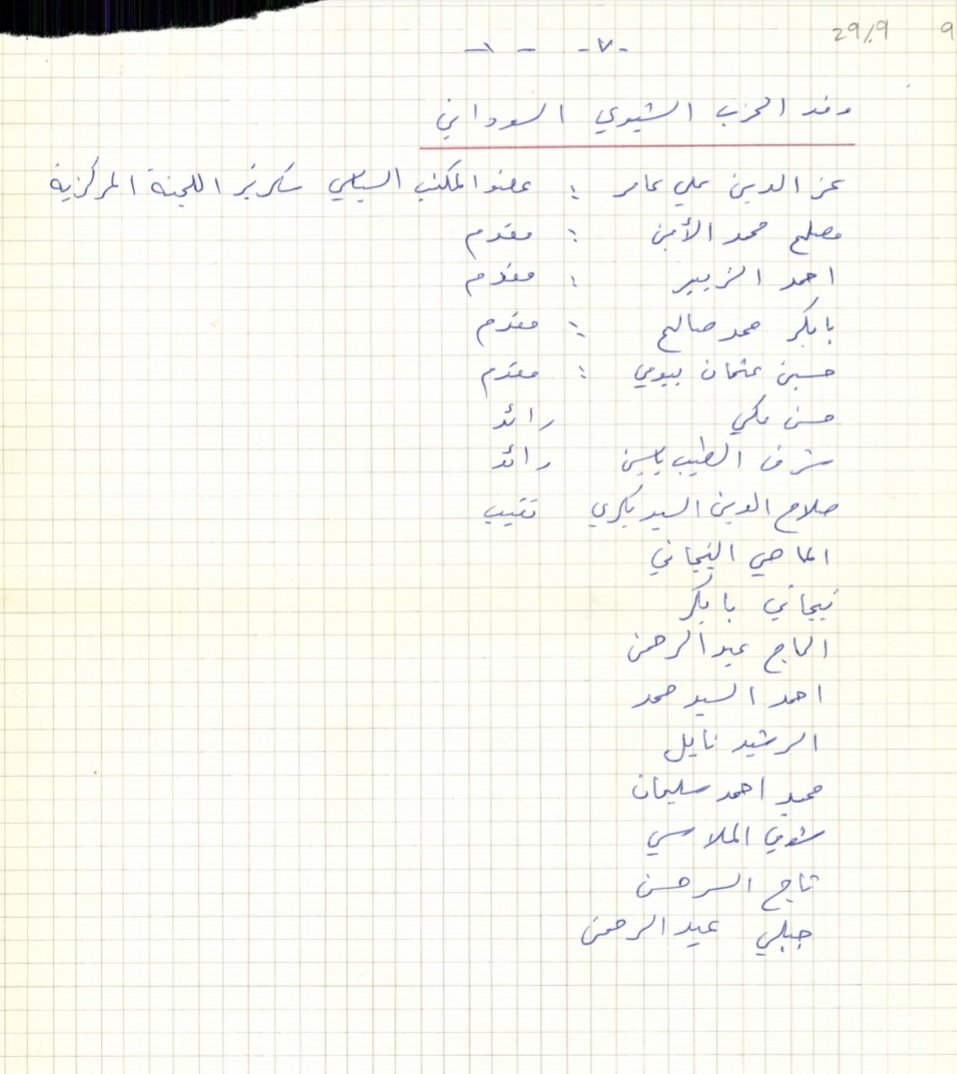 29/9 9
-٧- - ١ -
وفد الحزب الشيوعي السوداني
عز الدين علي عامر : عضو المكتب السياسي سكرتير اللجنة المركزية
مصلح محمد الأمين : مقدم
احمد الزبير : مقدم
بابكر محمد صالح : مقدم
حسين عثمان بيومي : مقدم
حسن مكي رائد
شرف الطيب ياسين رائد
صلاح الدين السيد بكري نقيب
الماحي التيجاني
تيجاني بابكر
الحاج عبد الرحمن
احمد السيد حمد
الرشيد نايل
محمد احمد سليمان
شوقي الملاسي
تاج السر حسن
جيلي عبد الرحمن